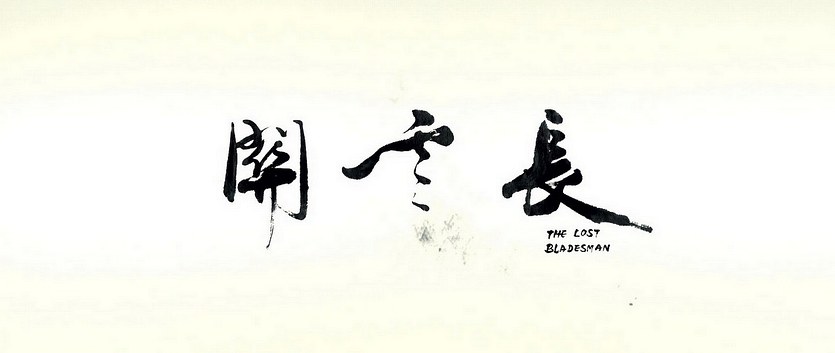 關雲長
THE LOST
BLADESMAN